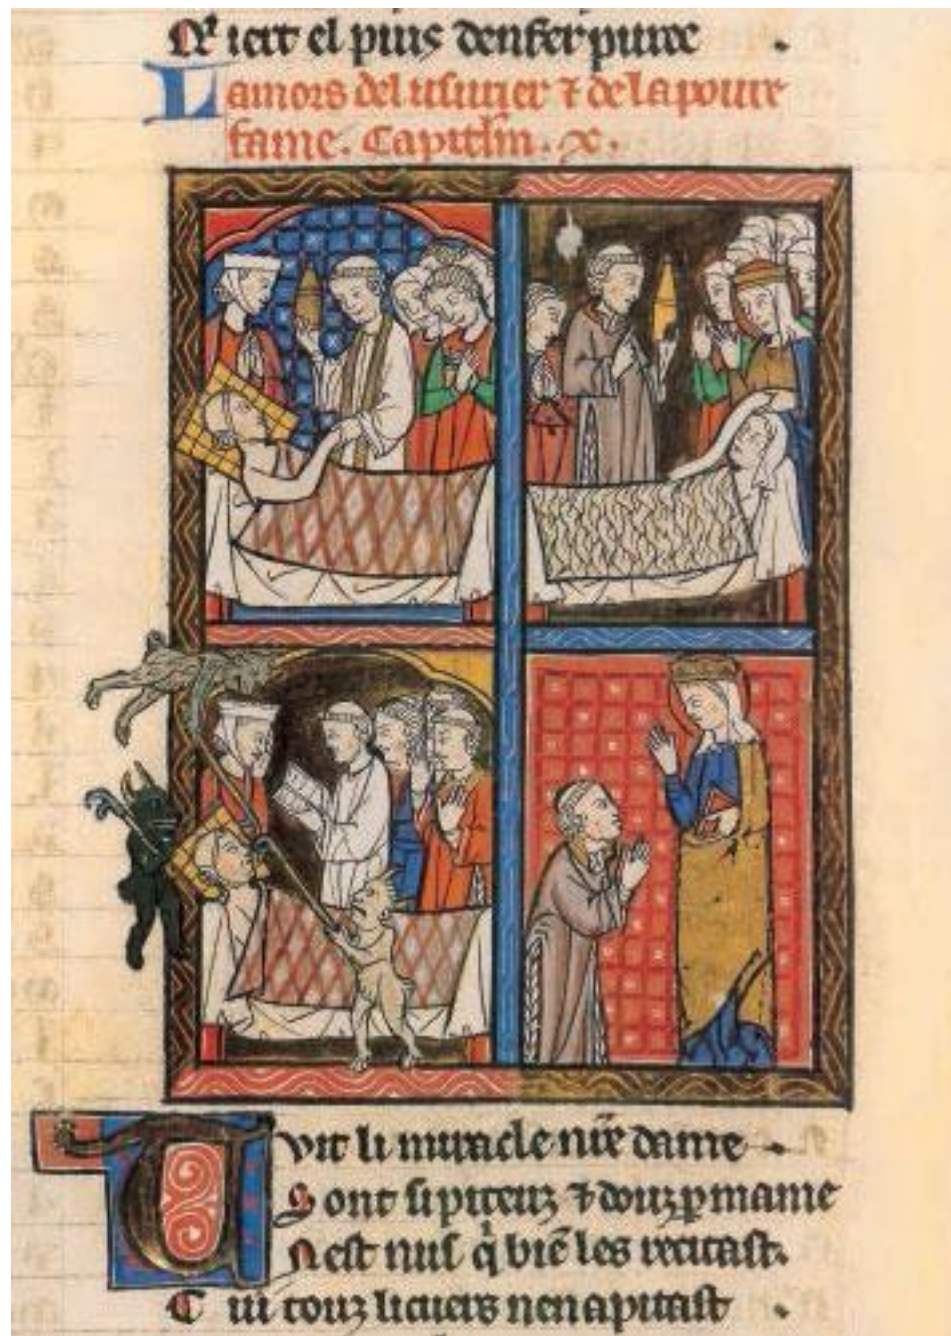 N'iert el puis denfer punie .
La mors del usurier ⁊ de la poure
fame. Capitlm. x.
Tuit li miracle nr̄e dame
Sont si piteuz ⁊ douz p̱ mame
Nest nus q̇ biē les recitast.
Cui touz li cuers nen apitast .